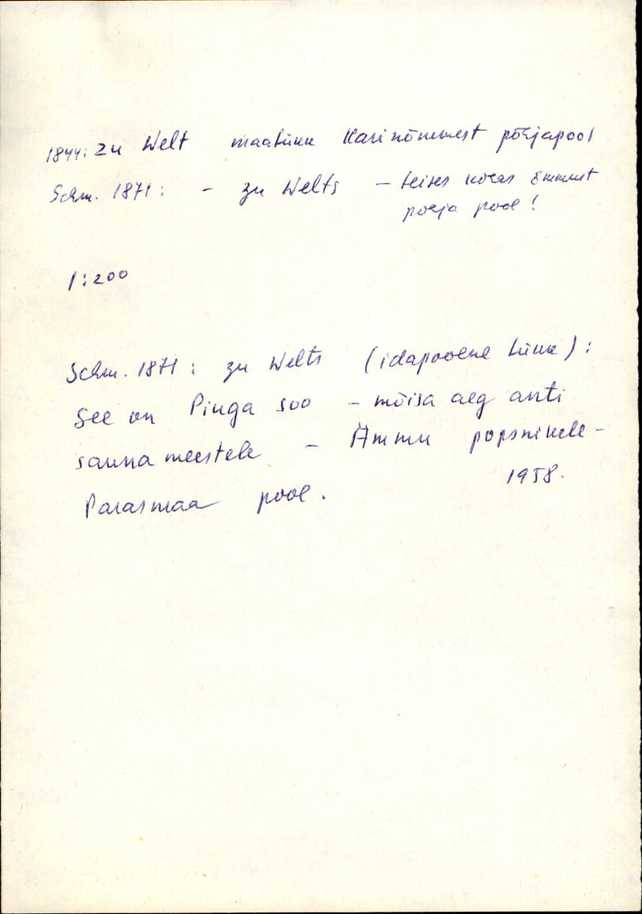 1844: zu Welt maatükk Karinõmmest põhjapool
Schm. 1871: - zu Welts - teises kohas Ämmust
põhja pool!
1:200
Schm. 1871: zu Welts (idapoolne tükk):
See on Pinga soo - mõisa aeg anti
sauna meestele - Ämmu popsnikele -
Parasmaa pool. 1958.